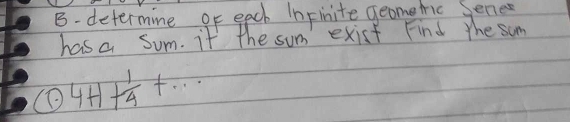 B - determine of each Infinite geometric Series
has a sum. if the sum exist Find the sum
① 4+1+1/4 +...